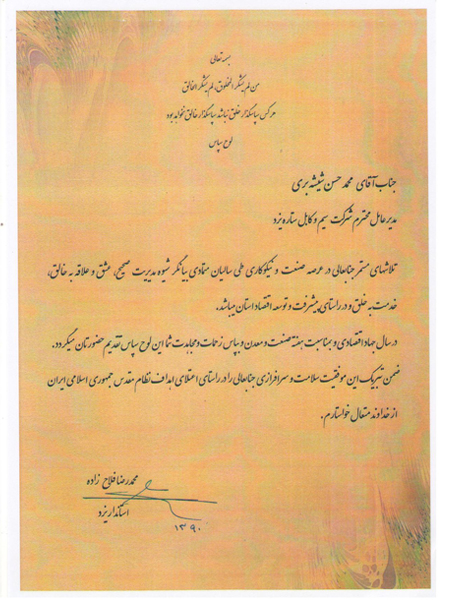 بسمه تعالی
من لم یشکر المخلوق، لم یشکر الخالق
هر کس سپاسگذار خلق نباشد سپاسگذار خالق نخواهد بود
لوح سپاس
جناب آقای محمد حسن شیشه بری
مدیر عامل محترم شرکت سیم و کابل ستاره یزد
تلاشهای مستمر جنابعالی در عرصه صنعت و نیکوکاری طی سالیان متمادی بیانگر شیوه مدیریت صحیح، عشق و علاقه به خالق،
خدمت به خلق و در راستای پیشرفت و توسعه اقتصاد استان میباشد.
در سال جهاد اقتصادی و بمناسبت هفته صنعت و معدن و بپاس زحمات و مجاهدت شما این لوح سپاس تقدیم حضورتان میگردد.
ضمن تبریک این موفقیت سلامت و سرافرازی جنابعالی را در راستای اعتلای اهداف نظام مقدس جمهوری اسلامی ایران
از خداوند متعال خواستارم.
محمدرضا فلاح زاده
استاندار یزد
۱۳۹۰